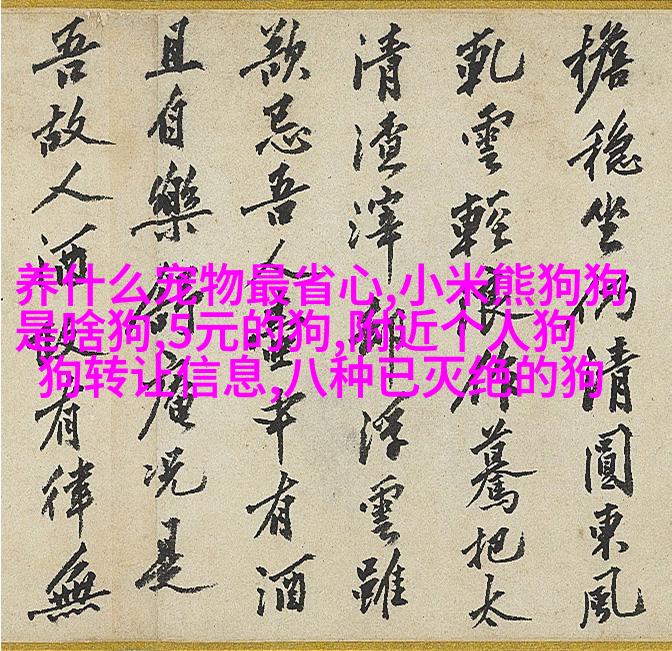 养什么宠物最省心,小米熊狗狗
是啥狗,5元的狗,附近个人狗
狗转让信息,八种已灭绝的狗
檐穩坐仍清圓東風
雲輕作驀把太
清渣滓浮雲雖
忌吾人有酒
且自樂庵况是
吾故人酒有律無